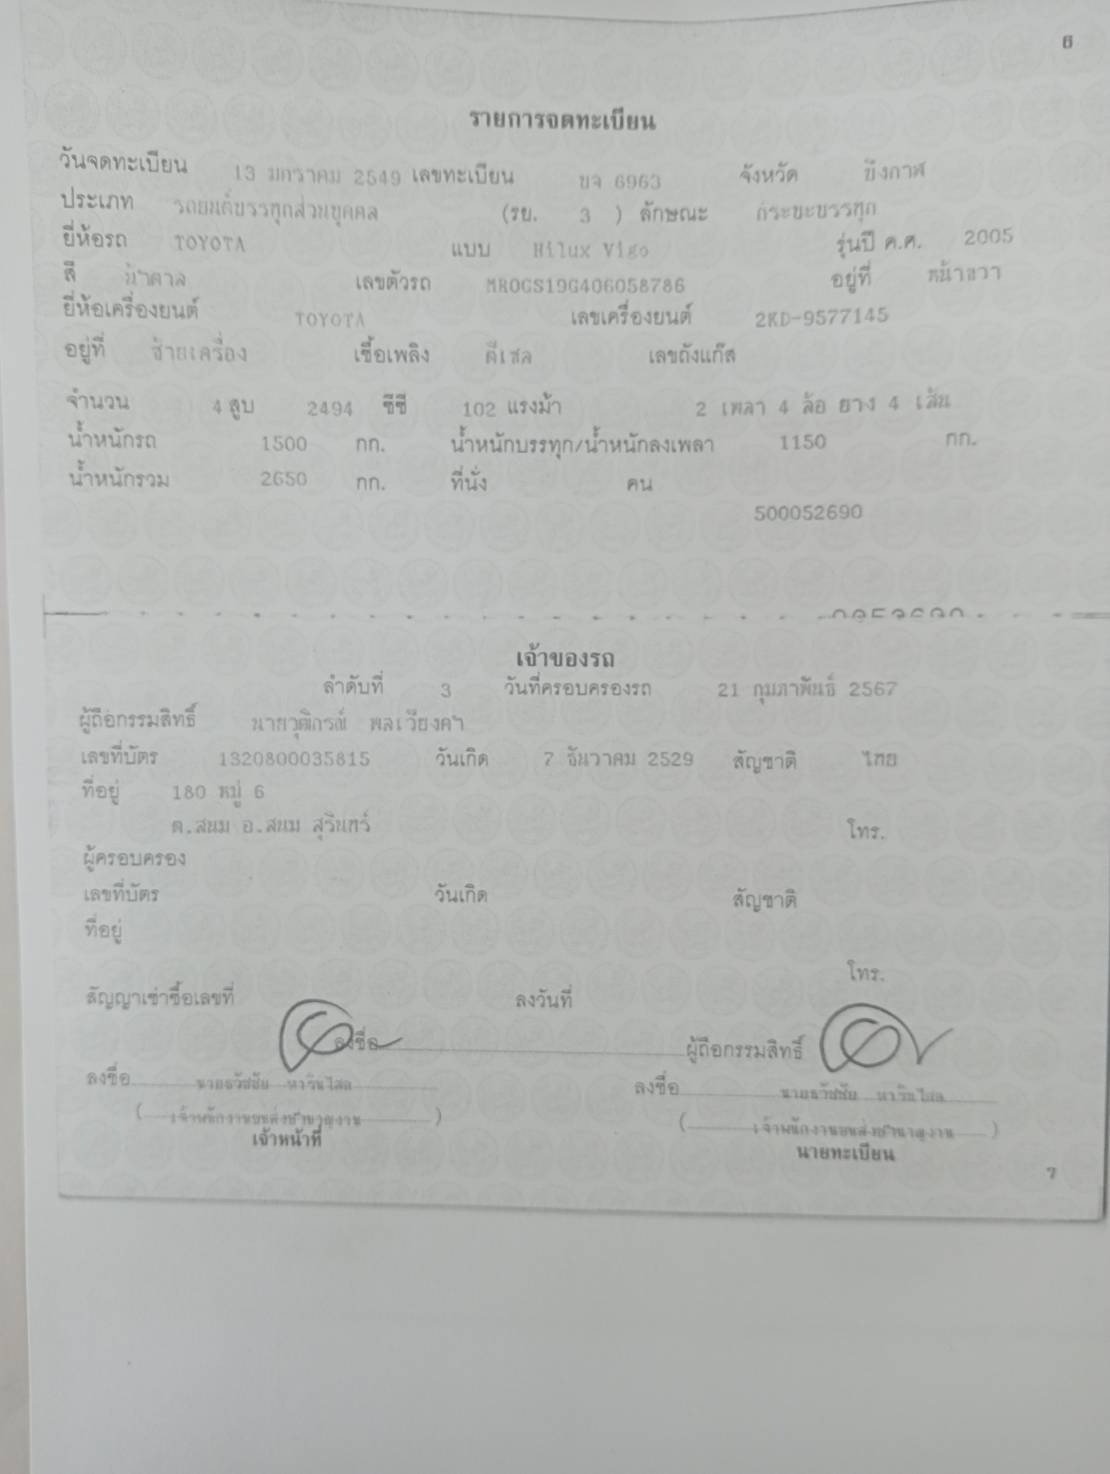 6
รายการจดทะเบียน
วันจดทะเบียน 13 มกราคม 2549 เลขทะเบียน บจ 6963 จังหวัด บึงกาฬ
ประเภท รถยนต์บรรทุกส่วนบุคคล (รย. 3 ) ลักษณะ กระบะบรรทุก
ยี่ห้อรถ TOYOTA แบบ Hilux Vigo รุ่นปี ค.ศ. 2005
สี น้ำตาล เลขตัวรถ MR0GS19G406058786 อยู่ที่ หน้าขวา
ยี่ห้อเครื่องยนต์ TOYOTA เลขเครื่องยนต์ 2KD-9577145
อยู่ที่ ซ้ายเครื่อง เชื้อเพลิง ดีเซล เลขถังแก๊ส
จำนวน 4 สูบ 2494 ซีซี 102 แรงม้า 2 เพลา 4 ล้อ ยาง 4 เส้น
น้ำหนักรถ 1500 กก. น้ำหนักบรรทุก/น้ำหนักลงเพลา 1150 กก.
น้ำหนักรวม 2650 กก. ที่นั่ง คน
500052690
เจ้าของรถ
ลำดับที่ 3 วันที่ครอบครองรถ 21 กุมภาพันธ์ 2567
ผู้ถือกรรมสิทธิ์ นายวุฒิกรณ์ พลเวียงคำ
เลขที่บัตร 1320800035815 วันเกิด 7 ธันวาคม 2529 สัญชาติ ไทย
ที่อยู่ 180 หมู่ 6
ต.สนม อ.สนม สุรินทร์ โทร.
ผู้ครอบครอง
เลขที่บัตร วันเกิด สัญชาติ
ที่อยู่
โทร.
สัญญาเช่าซื้อเลขที่ ลงวันที่
ลงชื่อ ผู้ถือกรรมสิทธิ์
ลงชื่อ นายธวัชชัย หาวินไสล ลงชื่อ นายธวัชชัย หาวินไสล
( เจ้าพนักงานขนส่งชำนาญงาน ) ( เจ้าพนักงานขนส่งชำนาญงาน )
เจ้าหน้าที่ นายทะเบียน
7